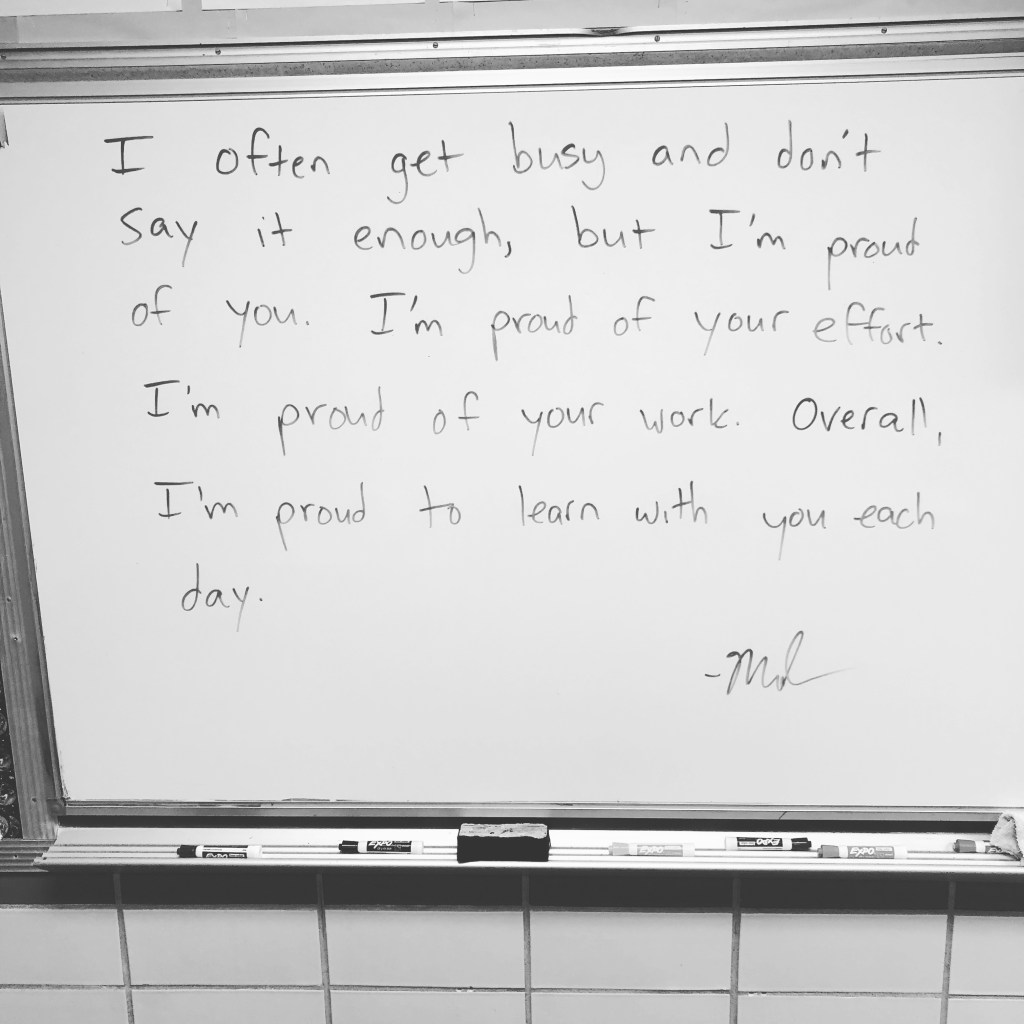 I often get busy and don't
say it enough, but I'm proud
of you. I'm proud of your effort.
I'm proud of your work. Overall,
I'm proud to learn with you each
day.
EXPO EXPO EXPO EXPO EXPO